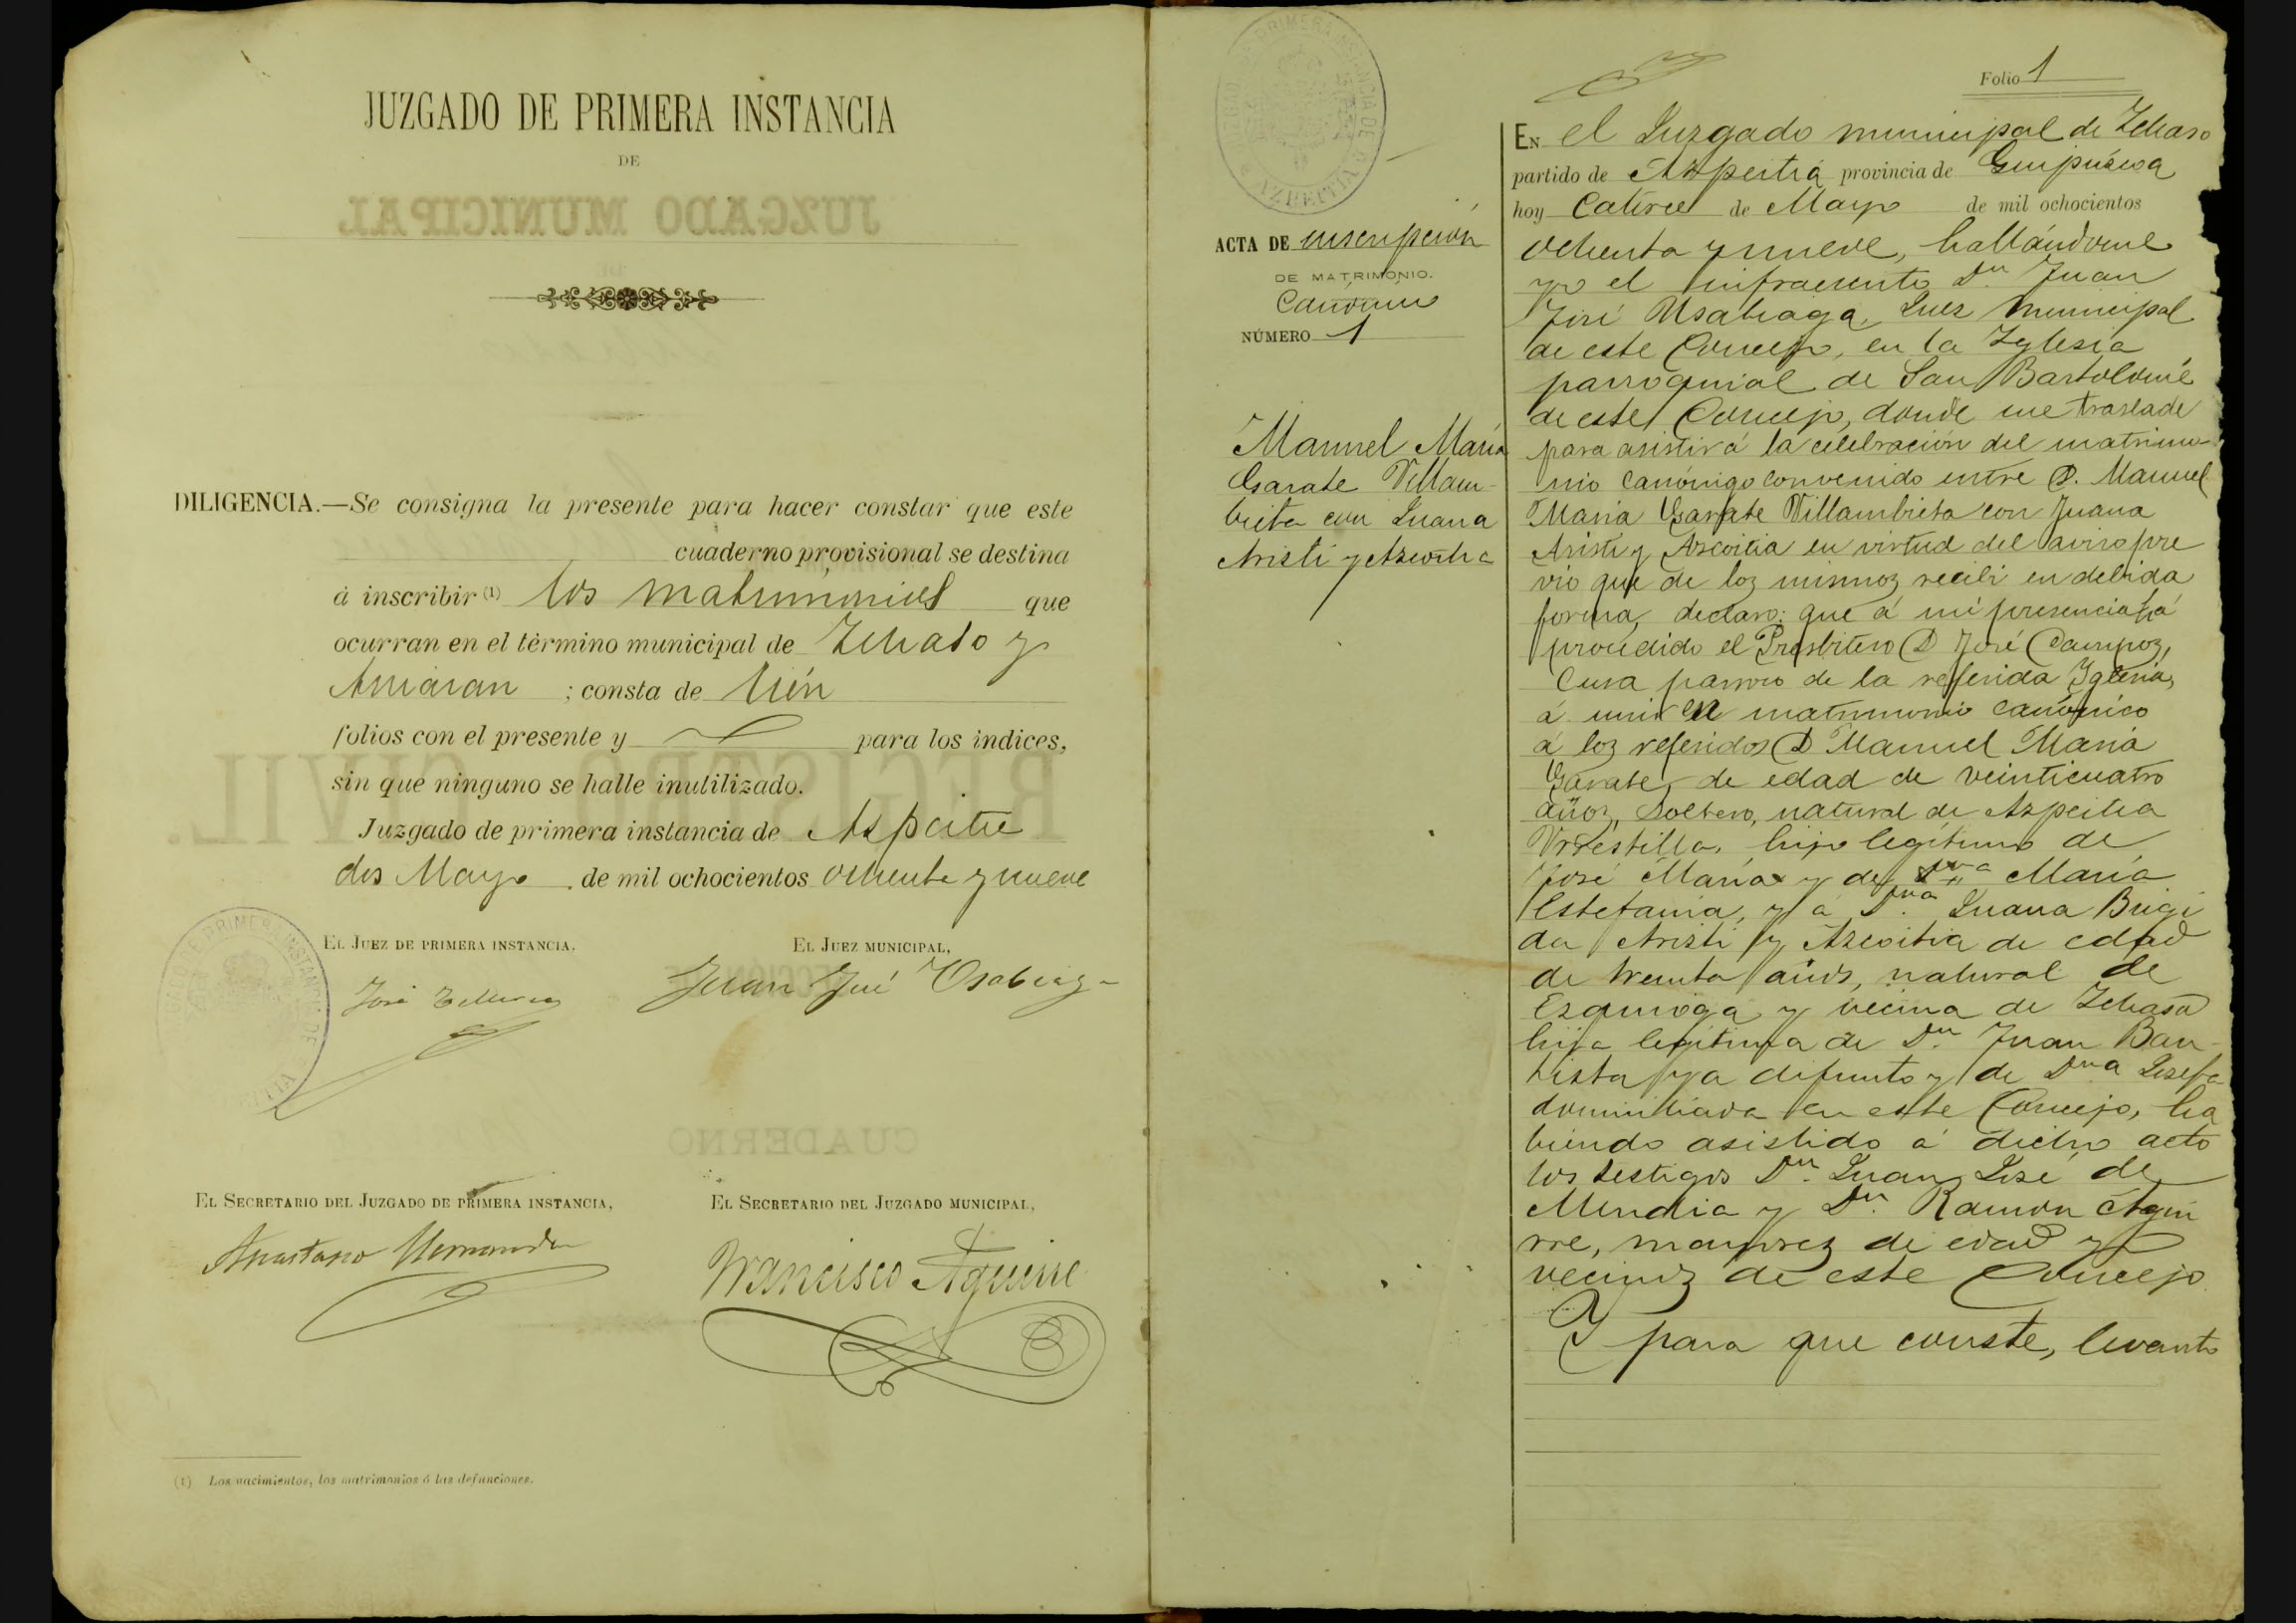 JUZGADO DE PRIMERA INSTANCIA
DE
DILIGENCIA.—Se consigna la presente para hacer constar que este
cuaderno provisional se destina
á inscribir (1) los matrimonios que
ocurran en el término municipal de Ichaso y
Arriaran ; consta de cién
folios con el presente y para los indices,
sin que ninguno se halle inutilizado.
Juzgado de primera instancia de Azpeitia
dos Mayo de mil ochocientos ochenta y nueve
EL JUEZ DE PRIMERA INSTANCIA.
EL JUEZ MUNICIPAL,
José
Juan José Usabiaga
EL SECRETARIO DEL JUZGADO DE PRIMERA INSTANCIA,
EL SECRETARIO DEL JUZGADO MUNICIPAL,
Anastasio Hernandez
Francisco Aguirre
(1) Los nacimientos, los matrimonios ó las defunciones.
Folio 1
ACTA DE inscripción
DE MATRIMONIO.
Canónico
NÚMERO 1
Manuel María
Garate Villam-
brieta con Juana
Aristi y Azcoitia
EN el Juzgado municipal de Ichaso
partido de Azpeitia provincia de Guipúzcoa
hoy Catorce de Mayo de mil ochocientos
ochenta y nueve, hallándome
yo el infraescrito Dn. Juan
José Usabiaga, Juez municipal
de este Concejo, en la Iglesia
parroquial de San Bartolomé
de este Concejo, donde me traslade
para asistir á la celebración del matrimo-
nio canónigo convenido entre D. Manuel
Maria Garate Villambrieta con Juana
Aristi y Azcoitia en virtud del aviso pre
vio que de loz mismoz recibi en debida
forma, declaro: que á mi presencia há
procedido el Presbitero D José Campoz,
Cura parroco de la referida Iglesia,
á unir en matrimonio canónico
á loz referidos D Manuel Maria
Garate, de edad de veinticuatro
añoz, soltero, natural de Azpeitia
Urrestilla, hijo legítimo de
José Maria y de Dna María
Estefania, y á Dna. Juana Brigi
da Aristi y Azcoitia de edad
de treinta años, natural de
Ezquioga y vecina de Ichaso
hija legítima de Dn. Juan Bau-
tista ya difunto y de Dna Josefa
domiciliada en este Concejo, ha
biendo asistido á dicho acto
los testigos Dn. Juan José de
Mendia y Dn. Ramon Agui
rre, mayorez de edad y
vecinoz de este Concejo
Y para que conste, levanto